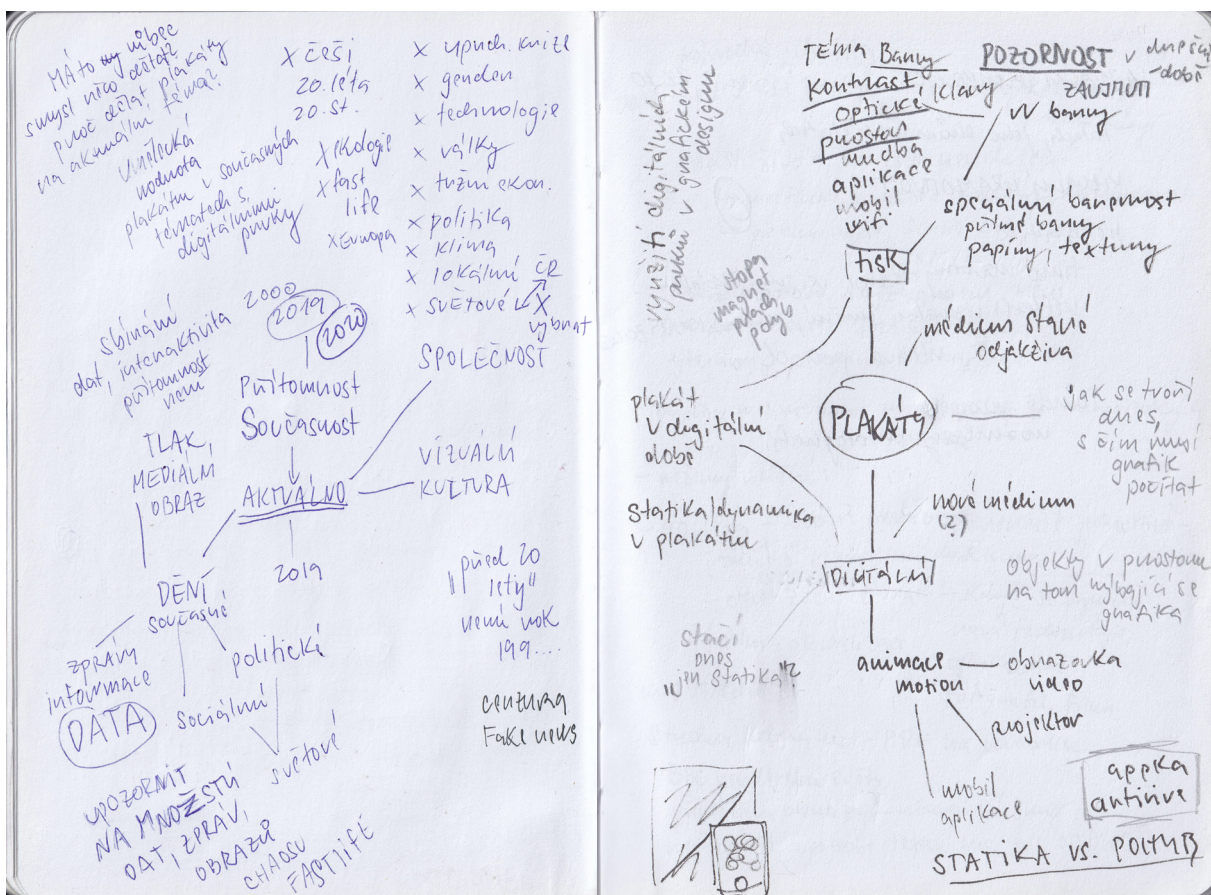 MÁ to vůbec
smysl něco dělat?
proč dělat plakáty
na aktuální téma?
Umělecká
hodnota
plakátu v současných
tématech s
digitálními
prvky
x češi
20. léta
20. st.
x Ekologie
x fast
life
x Evropa
x uprch. krize
x gender
x technologie
x války
x tržní ekon.
x politika
x klima
x lokální ČR
x světové X
vybrat
sbírání
dat, interaktivita
přítomnost
není
2000
2019
2020
Přítomnost
Současnost
SPOLEČNOST
TLAK,
MEDIÁLNÍ
OBRAZ
AKTUÁLNO
VIZUÁLNÍ
KULTURA
2019
DĚNÍ
současné
"před 20
lety"
není rok
199....
zprávy
informace
DATA
politické
sociální
světové
cenzura
Fake news
UPOZORNIT
NA MNOŽSTVÍ
DAT, ZPRÁV,
OBRAZŮ
CHAOSU
FASTLIFE
využití digitálních
prvků v grafickém
designu
TÉMA Barvy
Kontrast
Optické klamy
prostor
hudba
aplikace
mobil
wifi
POZORNOST v dnešní
době
ZAUJMUTÍ
UV barvy
speciální barevnost
přímé barvy
papíry, textury
tisk
stopa
magnet
pohyb
médium staré
odjakživa
plakát
v digitální
době
PLAKÁTY
jak se tvoří
dnes,
s čím musí
grafik
počítat
Statika/dynamika
v plakátu
nové médium
(?)
DIGITÁLNÍ
objekty v prostoru
na tom hýbající se
grafika
stačí
dnes
"jen statika"?
animace
motion
obrazovka
video
projektor
mobil
aplikace
appka
artivive
STATIKA VS. POHYB